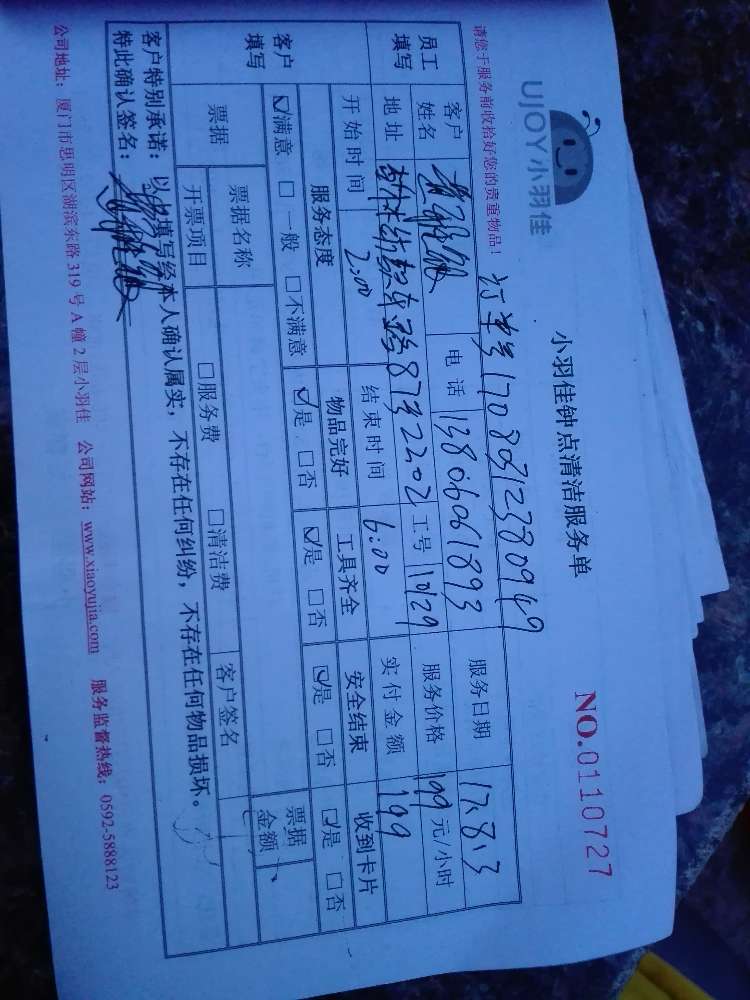 UJOY小羽佳
小羽佳钟点清洁服务单
NO.0110727
请您于服务前收拾好您的贵重物品！
订单号17080312380949
员工填写
客户姓名
电话 13806061893
服务日期 17.8.3
地址 87号2202
工号 10129
服务价格 199元/小时
开始时间 2:00
结束时间 6:00
实付金额 199
客户填写
服务态度 物品完好 工具齐全 安全结束 收到卡片
☑满意 □一般 □不满意 ☑是 □否 ☑是 □否 ☑是 □否 ☑是 □否
票据
票据名称
客户签名
票据金额
开票项目 □服务费 □清洁费
客户特别承诺：以上填写经本人确认属实，不存在任何纠纷，不存在任何物品损坏。
特此确认签名：
公司地址：厦门市思明区湖滨东路319号A幢2层小羽佳 公司网站：www.xiaoyujia.com 服务监督热线：0592-5888123